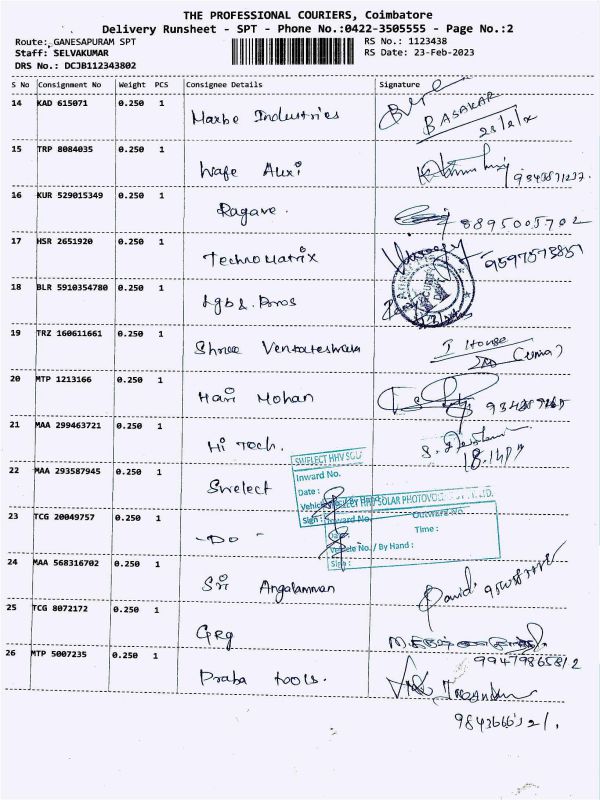 THE PROFESSIONAL COURIERS, Coimbatore
Delivery Runsheet - SPT - Phone No.:0422-3505555 - Page No.:2
Route: GANESAPURAM SPT
RS No.: 1123438
Staff: SELVAKUMAR
RS Date: 23-Feb-2023
DRS No.: DCJB112343802
S No Consignment No Weight PCS Consignee Details Signature
14 KAD 615071 0.250 1 Marbe Industries
BASAKAR
15 TRP 8084035 0.250 1 Wafe Auxi
16 KUR 529015349 0.250 1 Ragave. 8895005702
17 HSR 2651920 0.250 1 Techno Matrix
18 BLR 5910354780 0.250 1 Lgb & Bros
19 TRZ 160611661 0.250 1 Shree Venkateshwara
20 MTP 1213166 0.250 1 Hari Mohan
21 MAA 299463721 0.250 1 Hi Tech.
22 MAA 293587945 0.250 1 Swelect
SWELECT HHV SOL
Inward No.
Date :
Sign :
HHV SOLAR PHOTOVOL
LTD.
Inward No. Outward No.
Time :
Vehicle No. / By Hand :
Sign :
23 TCG 20049757 0.250 1 -Do-
24 MAA 568316702 0.250 1 Sri Angalamman
David
25 TCG 8072172 0.250 1 GRG
9947986582
26 MTP 5007235 0.250 1 Praba tools.